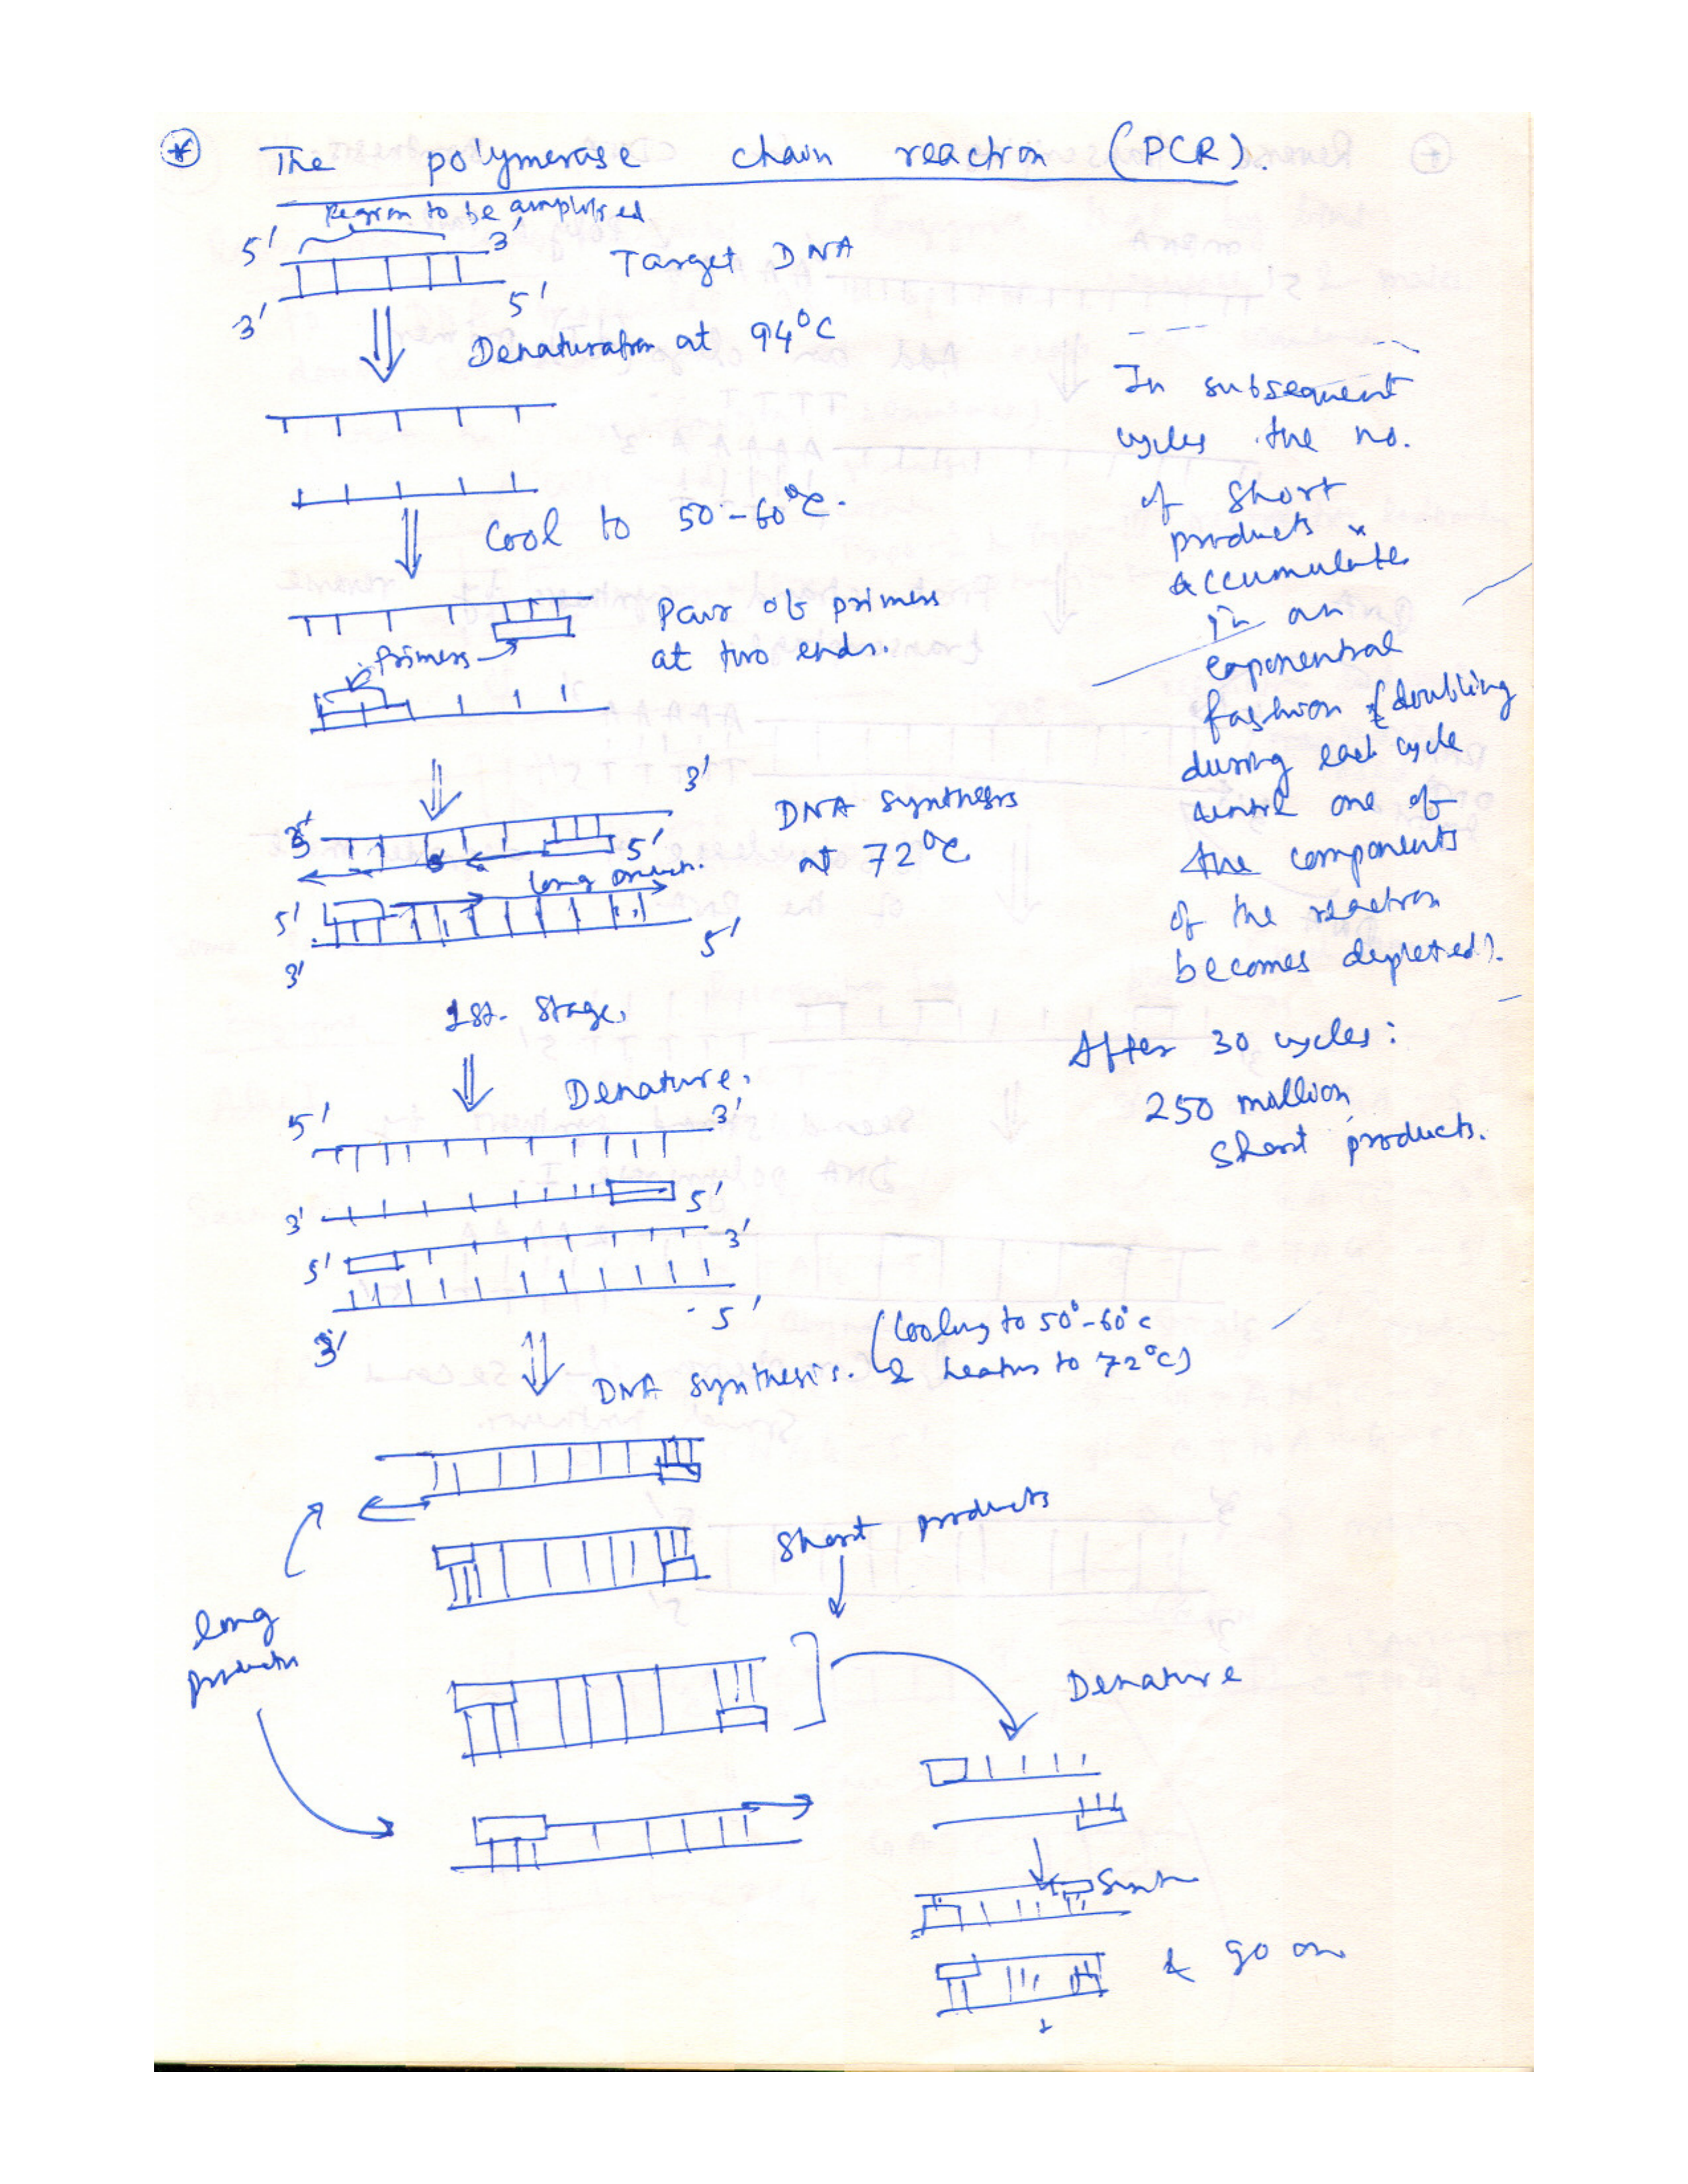 The polymerase chain reaction (PCR).
Region to be amplified
5' 3'
Target DNA
3' 5'
Denaturation at 94°C
Cool to 50-60°C.
Pair of primers
at two ends.
Primers
3'
3' 5'
DNA synthesis
at 72°C
long
5' 5'
3'
1st. Stage.
Denature.
5' 3'
3' 5'
5' 3'
3' 5'
DNA synthesis. (Cooling to 50°-60°c
& heating to 72°C)
Short products
long
products
Denature
& go on
In subsequent
cycles the no.
of short
products
accumulate
in an
exponential
fashion (doubling
during each cycle
until one of
the components
of the reaction
becomes depleted).
After 30 cycles:
250 million
short products.